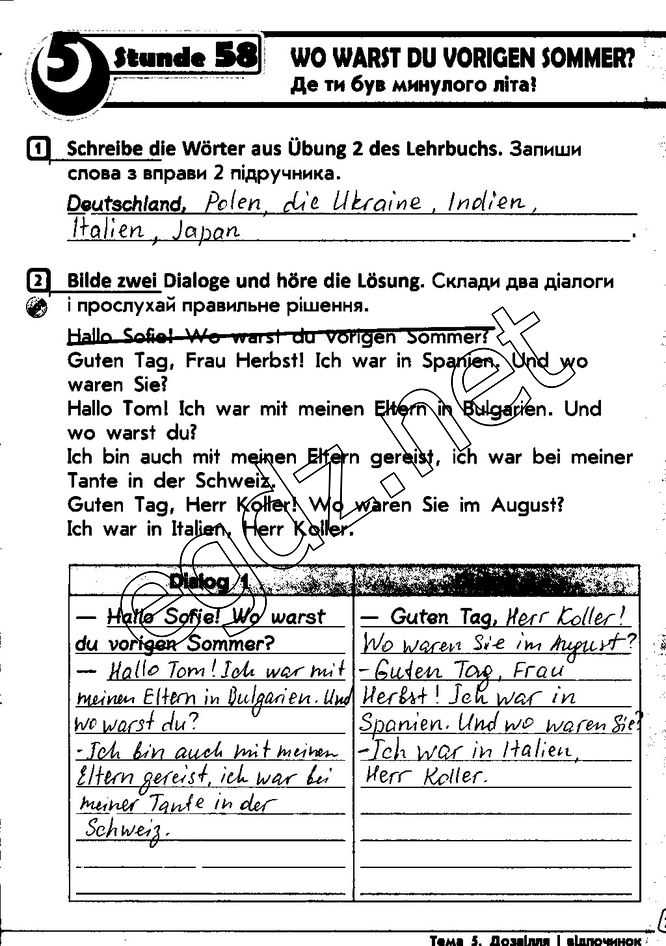 5 Stunde 58 WO WARST DU VORIGEN SOMMER?
Де ти був минулого літа?
1 Schreibe die Wörter aus Übung 2 des Lehrbuchs. Запиши
слова з вправи 2 підручника.
Deutschland, Polen, die Ukraine, Indien,
Italien, Japan.
2 Bilde zwei Dialoge und höre die Lösung. Склади два діалоги
і прослухай правильне рішення.
Hallo Sofie! Wo warst du vorigen Sommer?
Guten Tag, Frau Herbst! Ich war in Spanien. Und wo
waren Sie?
Hallo Tom! Ich war mit meinen Eltern in Bulgarien. Und
wo warst du?
Ich bin auch mit meinen Eltern gereist, ich war bei meiner
Tante in der Schweiz.
Guten Tag, Herr Koller! Wo waren Sie im August?
Ich war in Italien, Herr Koller.
egdz.net
Dialog 1
— Hallo Sofie! Wo warst
du vorigen Sommer?
— Hallo Tom! Ich war mit
meinen Eltern in Bulgarien. Und
wo warst du?
- Ich bin auch mit meinen
Eltern gereist, ich war bei
meiner Tante in der
Schweiz.
— Guten Tag, Herr Koller!
Wo waren Sie im August?
- Guten Tag, Frau
Herbst! Ich war in
Spanien. Und wo waren Sie?
- Ich war in Italien,
Herr Koller.
Тема 5. Дозвілля і відпочинок